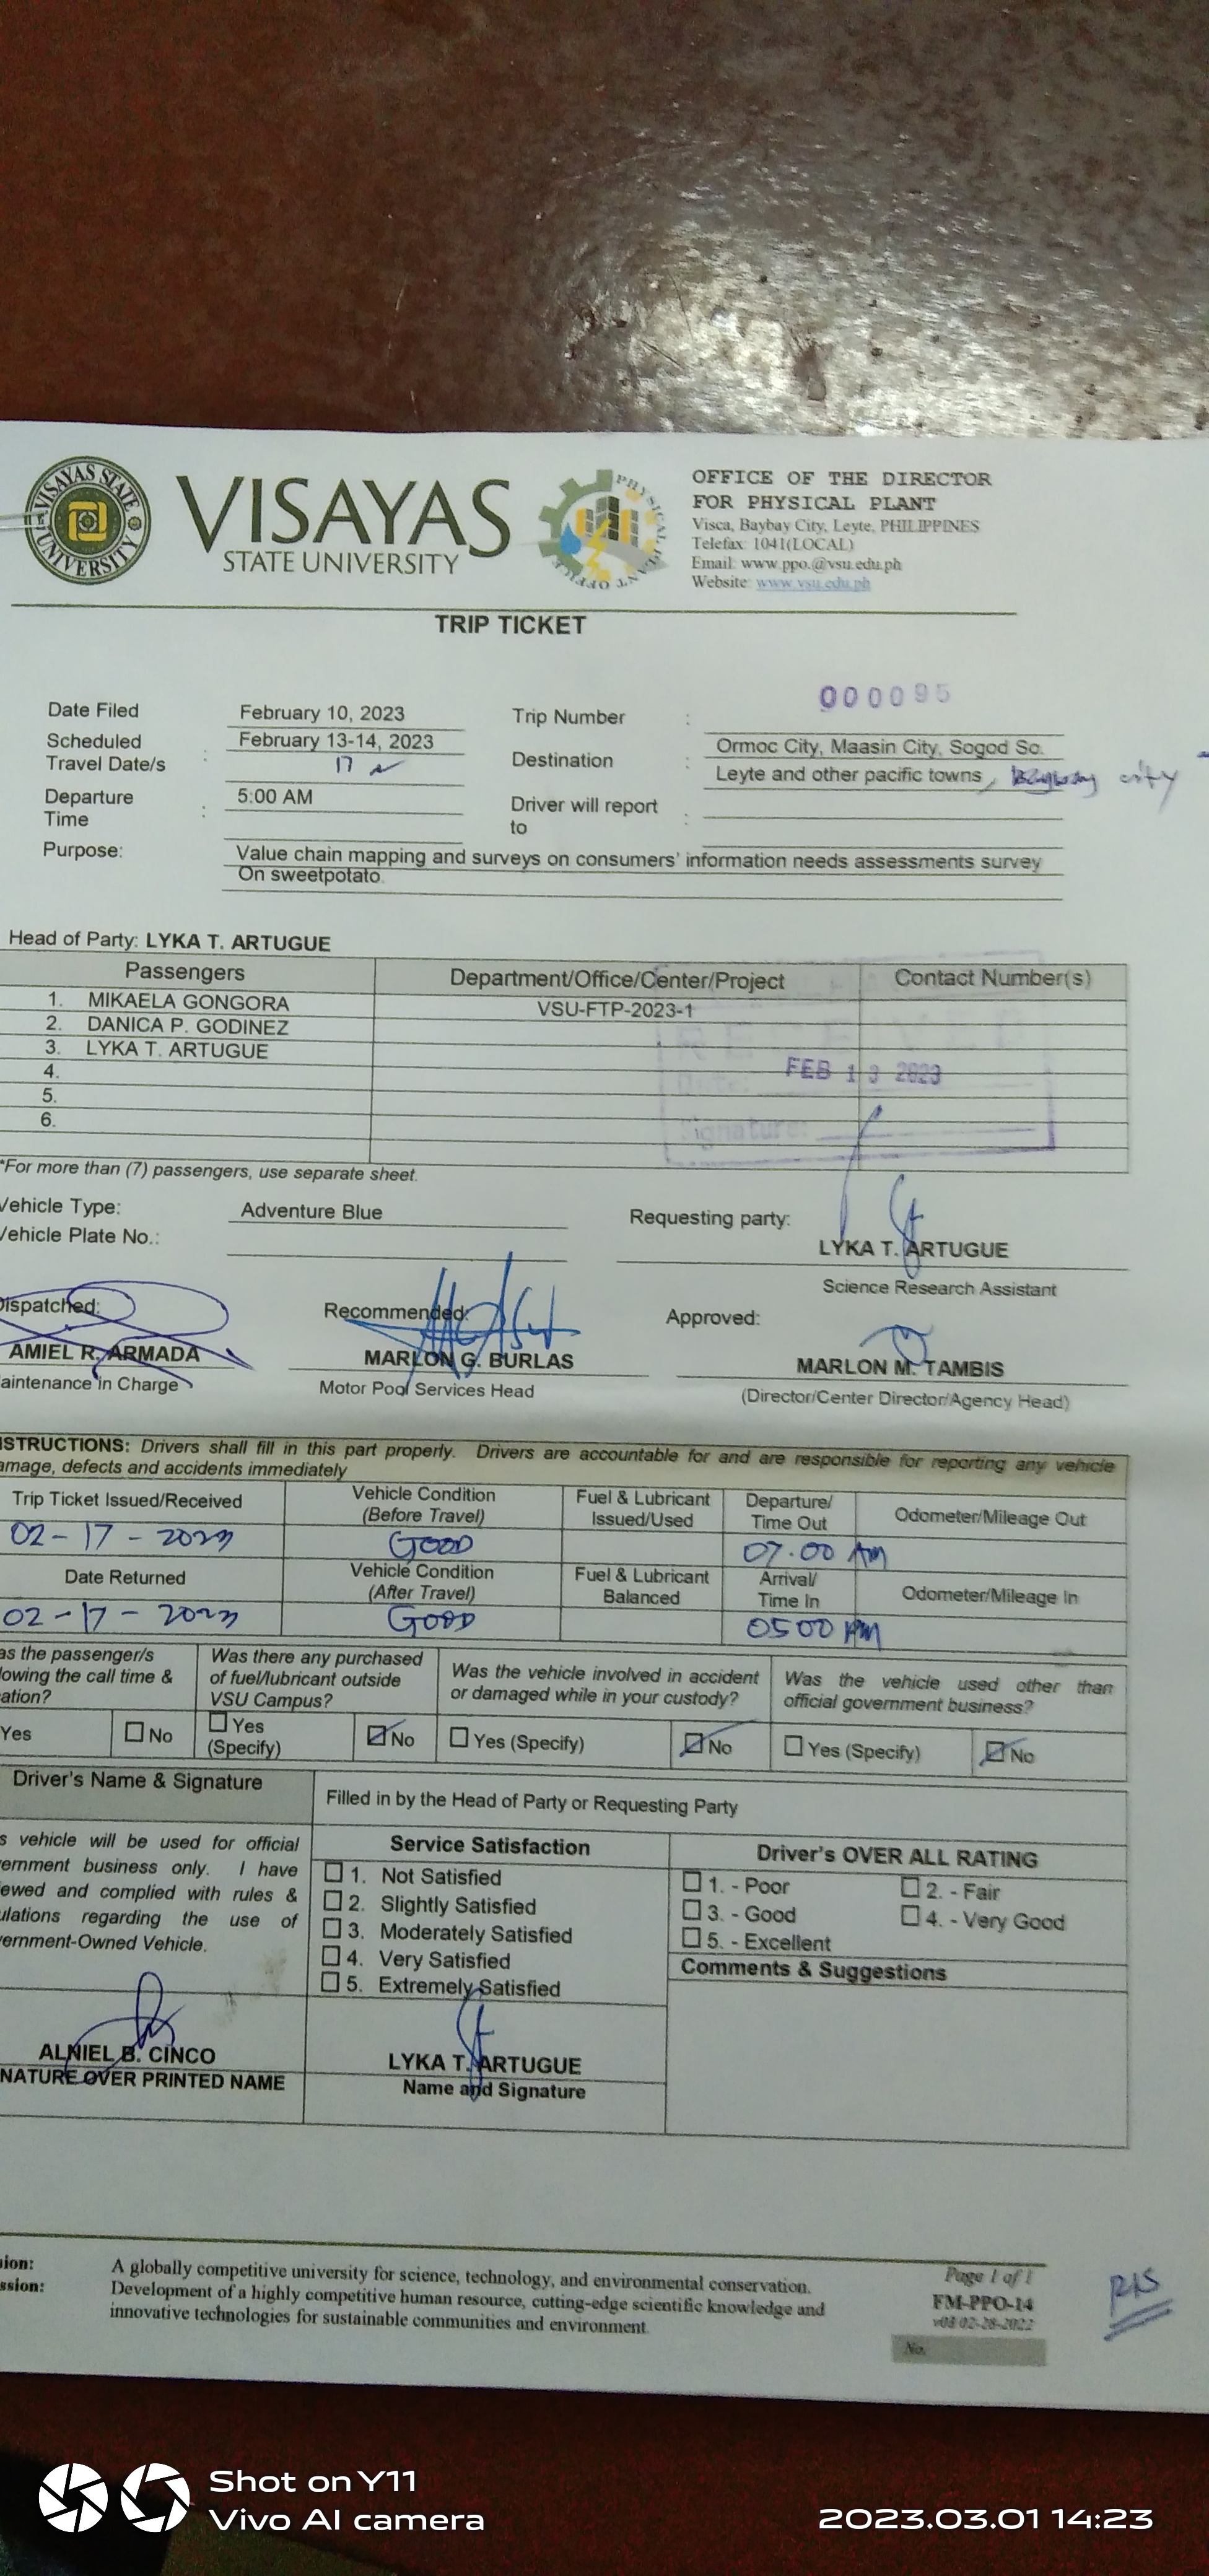 VISAYAS STATE UNIVERSITY
VISAYAS
STATE UNIVERSITY
PHYSICAL PLANT OFFICE
OFFICE OF THE DIRECTOR
FOR PHYSICAL PLANT
Visca, Baybay City, Leyte, PHILIPPINES
Telefax: 1041(LOCAL)
Email: www.ppo.@vsu.edu.ph
Website: www.vsu.edu.ph
TRIP TICKET
000095
Date Filed February 10, 2023 Trip Number :
Scheduled Travel Date/s : February 13-14, 2023
17
Destination : Ormoc City, Maasin City, Sogod So.
Leyte and other pacific towns, city
Departure Time : 5:00 AM Driver will report to :
Purpose: Value chain mapping and surveys on consumers' information needs assessments survey
On sweetpotato.
Head of Party: LYKA T. ARTUGUE
Passengers Department/Office/Center/Project Contact Number(s)
1. MIKAELA GONGORA VSU-FTP-2023-1
2. DANICA P. GODINEZ
3. LYKA T. ARTUGUE
4.
5.
6.
FEB 13 2023
Signature:
*For more than (7) passengers, use separate sheet.
Vehicle Type: Adventure Blue Requesting party:
Vehicle Plate No.:
LYKA T. ARTUGUE
Science Research Assistant
Dispatched: Recommended: Approved:
AMIEL R. ARMADA MARLON G. BURLAS MARLON M. TAMBIS
aintenance in Charge Motor Pool Services Head (Director/Center Director/Agency Head)
STRUCTIONS: Drivers shall fill in this part properly. Drivers are accountable for and are responsible for reporting any vehicle
amage, defects and accidents immediately
Trip Ticket Issued/Received Vehicle Condition (Before Travel) Fuel & Lubricant Issued/Used Departure/ Time Out Odometer/Mileage Out
02-17-2023 GOOD 07.00 AM
Date Returned Vehicle Condition (After Travel) Fuel & Lubricant Balanced Arrival/ Time In Odometer/Mileage In
02-17-2023 GOOD 0500 PM
as the passenger/s
lowing the call time &
ation?
Was there any purchased
of fuel/lubricant outside
VSU Campus?
Was the vehicle involved in accident
or damaged while in your custody?
Was the vehicle used other than
official government business?
Yes No Yes (Specify) No Yes (Specify) No Yes (Specify) No
Driver's Name & Signature Filled in by the Head of Party or Requesting Party
s vehicle will be used for official
ernment business only. I have
ewed and complied with rules &
ulations regarding the use of
vernment-Owned Vehicle.
Service Satisfaction
1. Not Satisfied
2. Slightly Satisfied
3. Moderately Satisfied
4. Very Satisfied
5. Extremely Satisfied
Driver's OVER ALL RATING
1. - Poor 2. - Fair
3. - Good 4. - Very Good
5. - Excellent
Comments & Suggestions
ALNIEL B. CINCO
NATURE OVER PRINTED NAME
LYKA T. ARTUGUE
Name and Signature
sion: A globally competitive university for science, technology, and environmental conservation.
ssion: Development of a highly competitive human resource, cutting-edge scientific knowledge and
innovative technologies for sustainable communities and environment.
Page 1 of 1
FM-PPO-14
v03 02-28-2022
No.
RIS
Shot on Y11
Vivo AI camera
2023.03.01 14:23